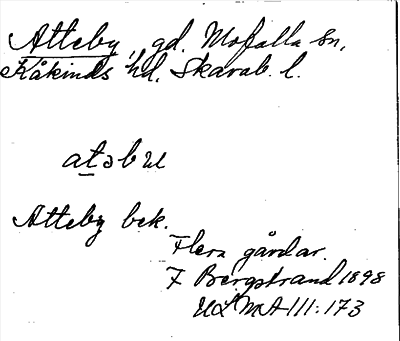 Atteby, gd. Mofalla sn,
Kåkinds hd, Skarab. l.
Atteby bek.
Flera gårdar.
F Bergstrand 1898
ULMA 111:173